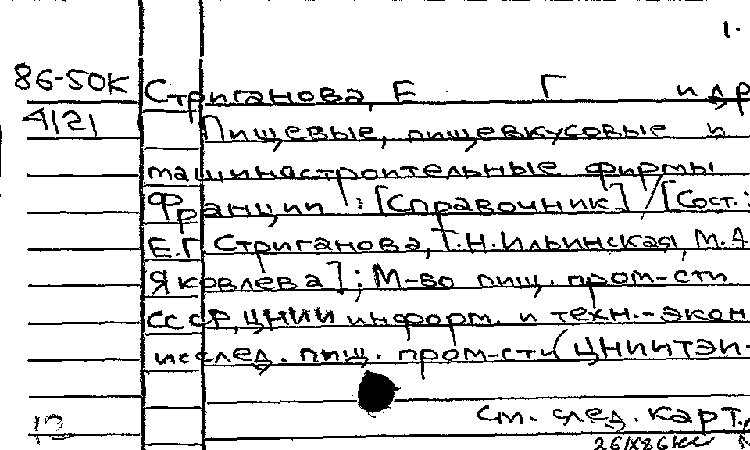 1.
86-50К Стриганова, Е Г и др
4121 Пищевые, пищевкусовые и
машинастроительные фирмы
Франции : [Справочник] / [Сост.:
Е.Г. Стриганова, Г.Н. Ильинская, М.А.
Яковлева]; М-во пищ. пром-сти
СССР, ЦНИИ информ. и техн.-экон
исслед. пищ. пром-сти (ЦНИИТЭИ-
см. след. карт.